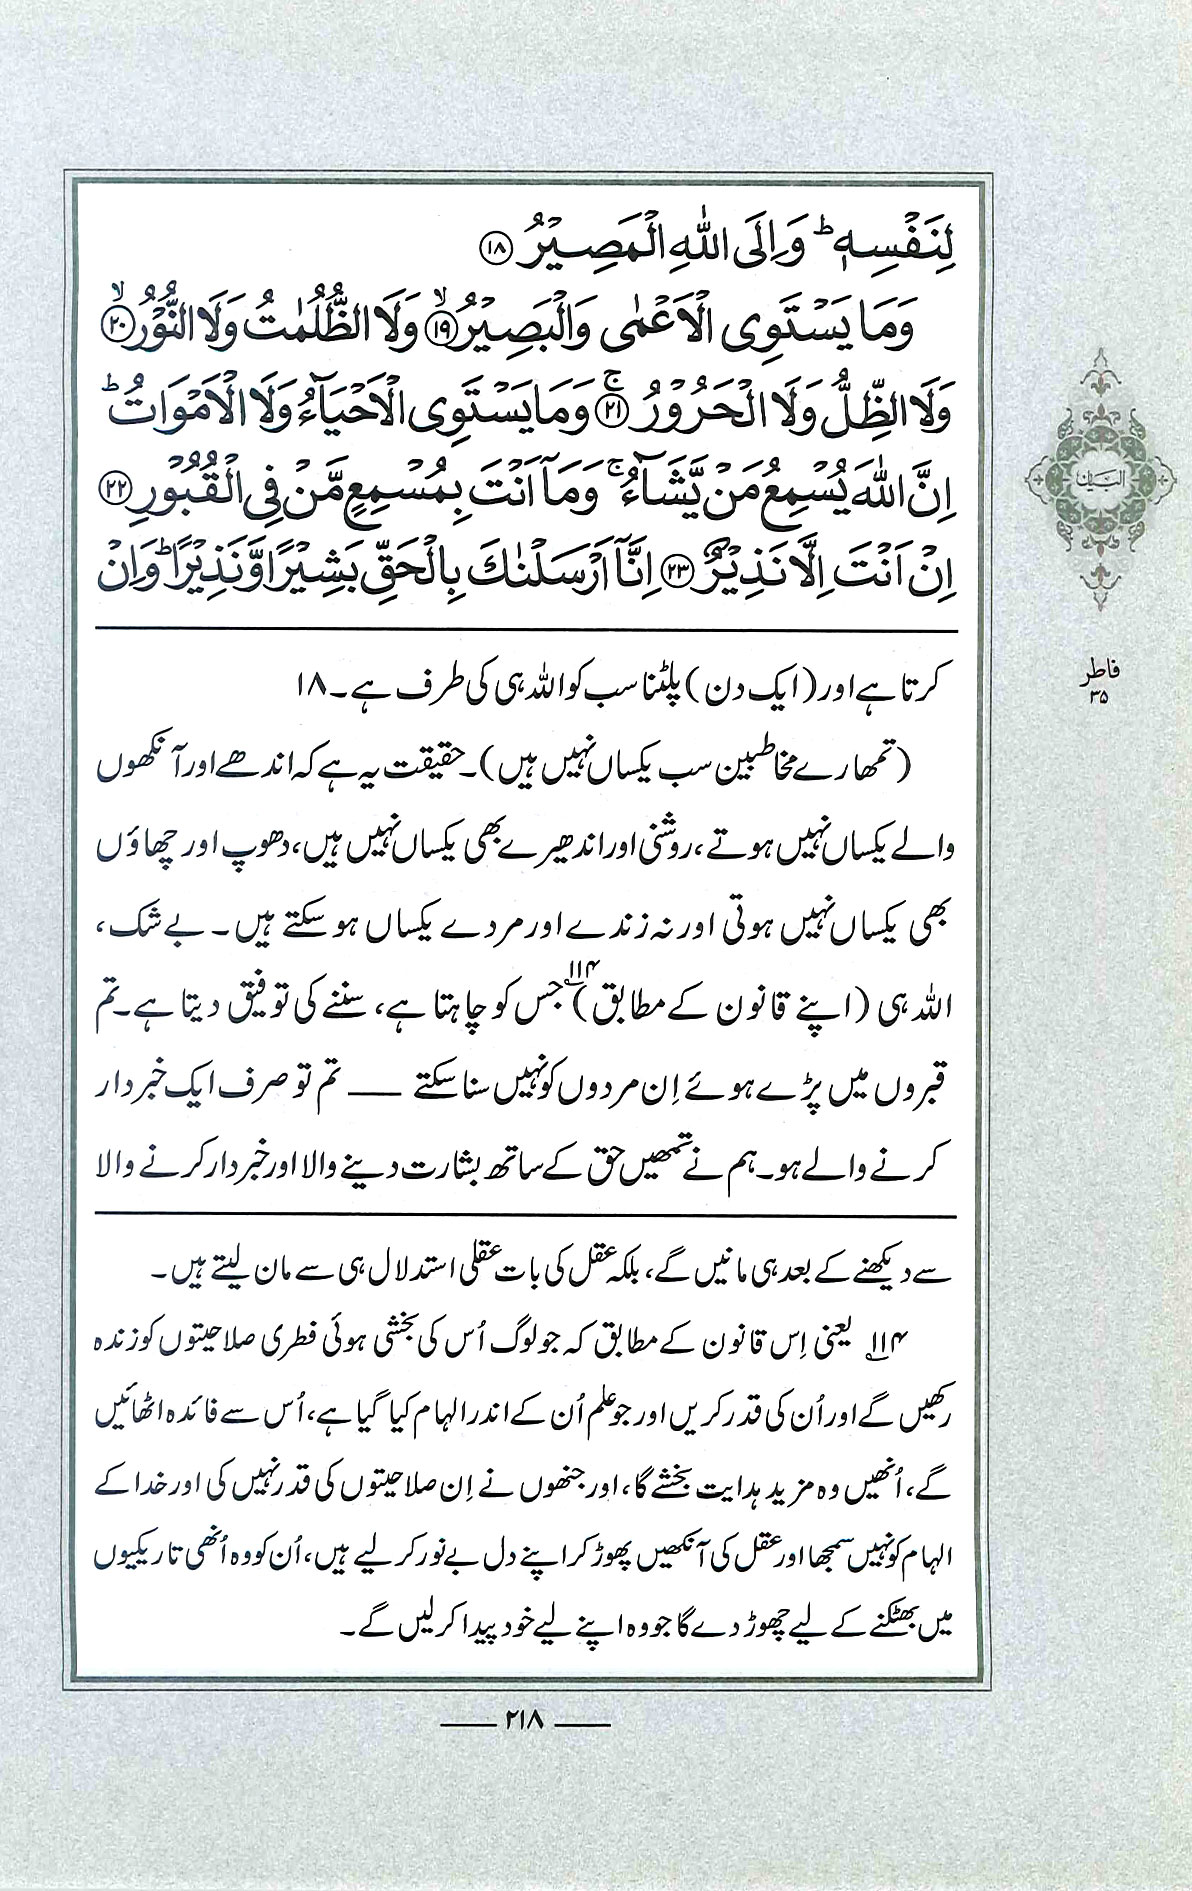 لِنَفْسِهٖ ؕ وَاِلَى اللّٰهِ الْمَصِيْرُ ﴿۱۸﴾
وَمَا يَسْتَوِى الْاَعْمٰى وَالْبَصِيْرُ ﴿۱۹﴾ ۙ وَلَا الظُّلُمٰتُ وَلَا النُّوْرُ ﴿۲۰﴾ ۙ
وَلَا الظِّلُّ وَلَا الْحَرُوْرُ ﴿۲۱﴾ ۚ وَمَا يَسْتَوِى الْاَحْيَآءُ وَلَا الْاَمْوَاتُ ؕ
اِنَّ اللّٰهَ يُسْمِعُ مَنْ يَّشَآءُ ۚ وَمَاۤ اَنْتَ بِمُسْمِعٍ مَّنْ فِى الْقُبُوْرِ ﴿۲۲﴾
اِنْ اَنْتَ اِلَّا نَذِيْرٌ ﴿۲۳﴾ اِنَّاۤ اَرْسَلْنٰكَ بِالْحَقِّ بَشِيْرًا وَّنَذِيْرًا ؕ وَاِنْ
کرتا ہے اور (ایک دن) پلٹنا سب کو اللہ ہی کی طرف ہے۔ ۱۸
(تمھارے مخاطبین سب یکساں نہیں ہیں)۔ حقیقت یہ ہے کہ اندھے اور آنکھوں
والے یکساں نہیں ہوتے، روشنی اور اندھیرے بھی یکساں نہیں ہیں، دھوپ اور چھاؤں
بھی یکساں نہیں ہوتی اور نہ زندے اور مردے یکساں ہو سکتے ہیں۔ بے شک،
اللہ ہی (اپنے قانون کے مطابق)۱۱۴ جس کو چاہتا ہے، سننے کی توفیق دیتا ہے۔ تم
قبروں میں پڑے ہوئے اِن مردوں کو نہیں سنا سکتے — تم تو صرف ایک خبردار
کرنے والے ہو۔ ہم نے تمھیں حق کے ساتھ بشارت دینے والا اور خبردار کرنے والا
سے دیکھنے کے بعد ہی مانیں گے، بلکہ عقل کی بات عقلی استدلال ہی سے مان لیتے ہیں۔
۱۱۴ یعنی اِس قانون کے مطابق کہ جو لوگ اُس کی بخشی ہوئی فطری صلاحیتوں کو زندہ
رکھیں گے اور اُن کی قدر کریں اور جو علم اُن کے اندر الہام کیا گیا ہے، اُس سے فائدہ اٹھائیں
گے، اُنھیں وہ مزید ہدایت بخشے گا، اور جنھوں نے اِن صلاحیتوں کی قدر نہیں کی اور خدا کے
الہام کو نہیں سمجھا اور عقل کی آنکھیں پھوڑ کر اپنے دل بے نور کر لیے ہیں، اُن کو وہ اُنھی تاریکیوں
میں بھٹکنے کے لیے چھوڑ دے گا جو وہ اپنے لیے خود پیدا کر لیں گے۔
البیان
فاطر
۳۵
۲۱۸